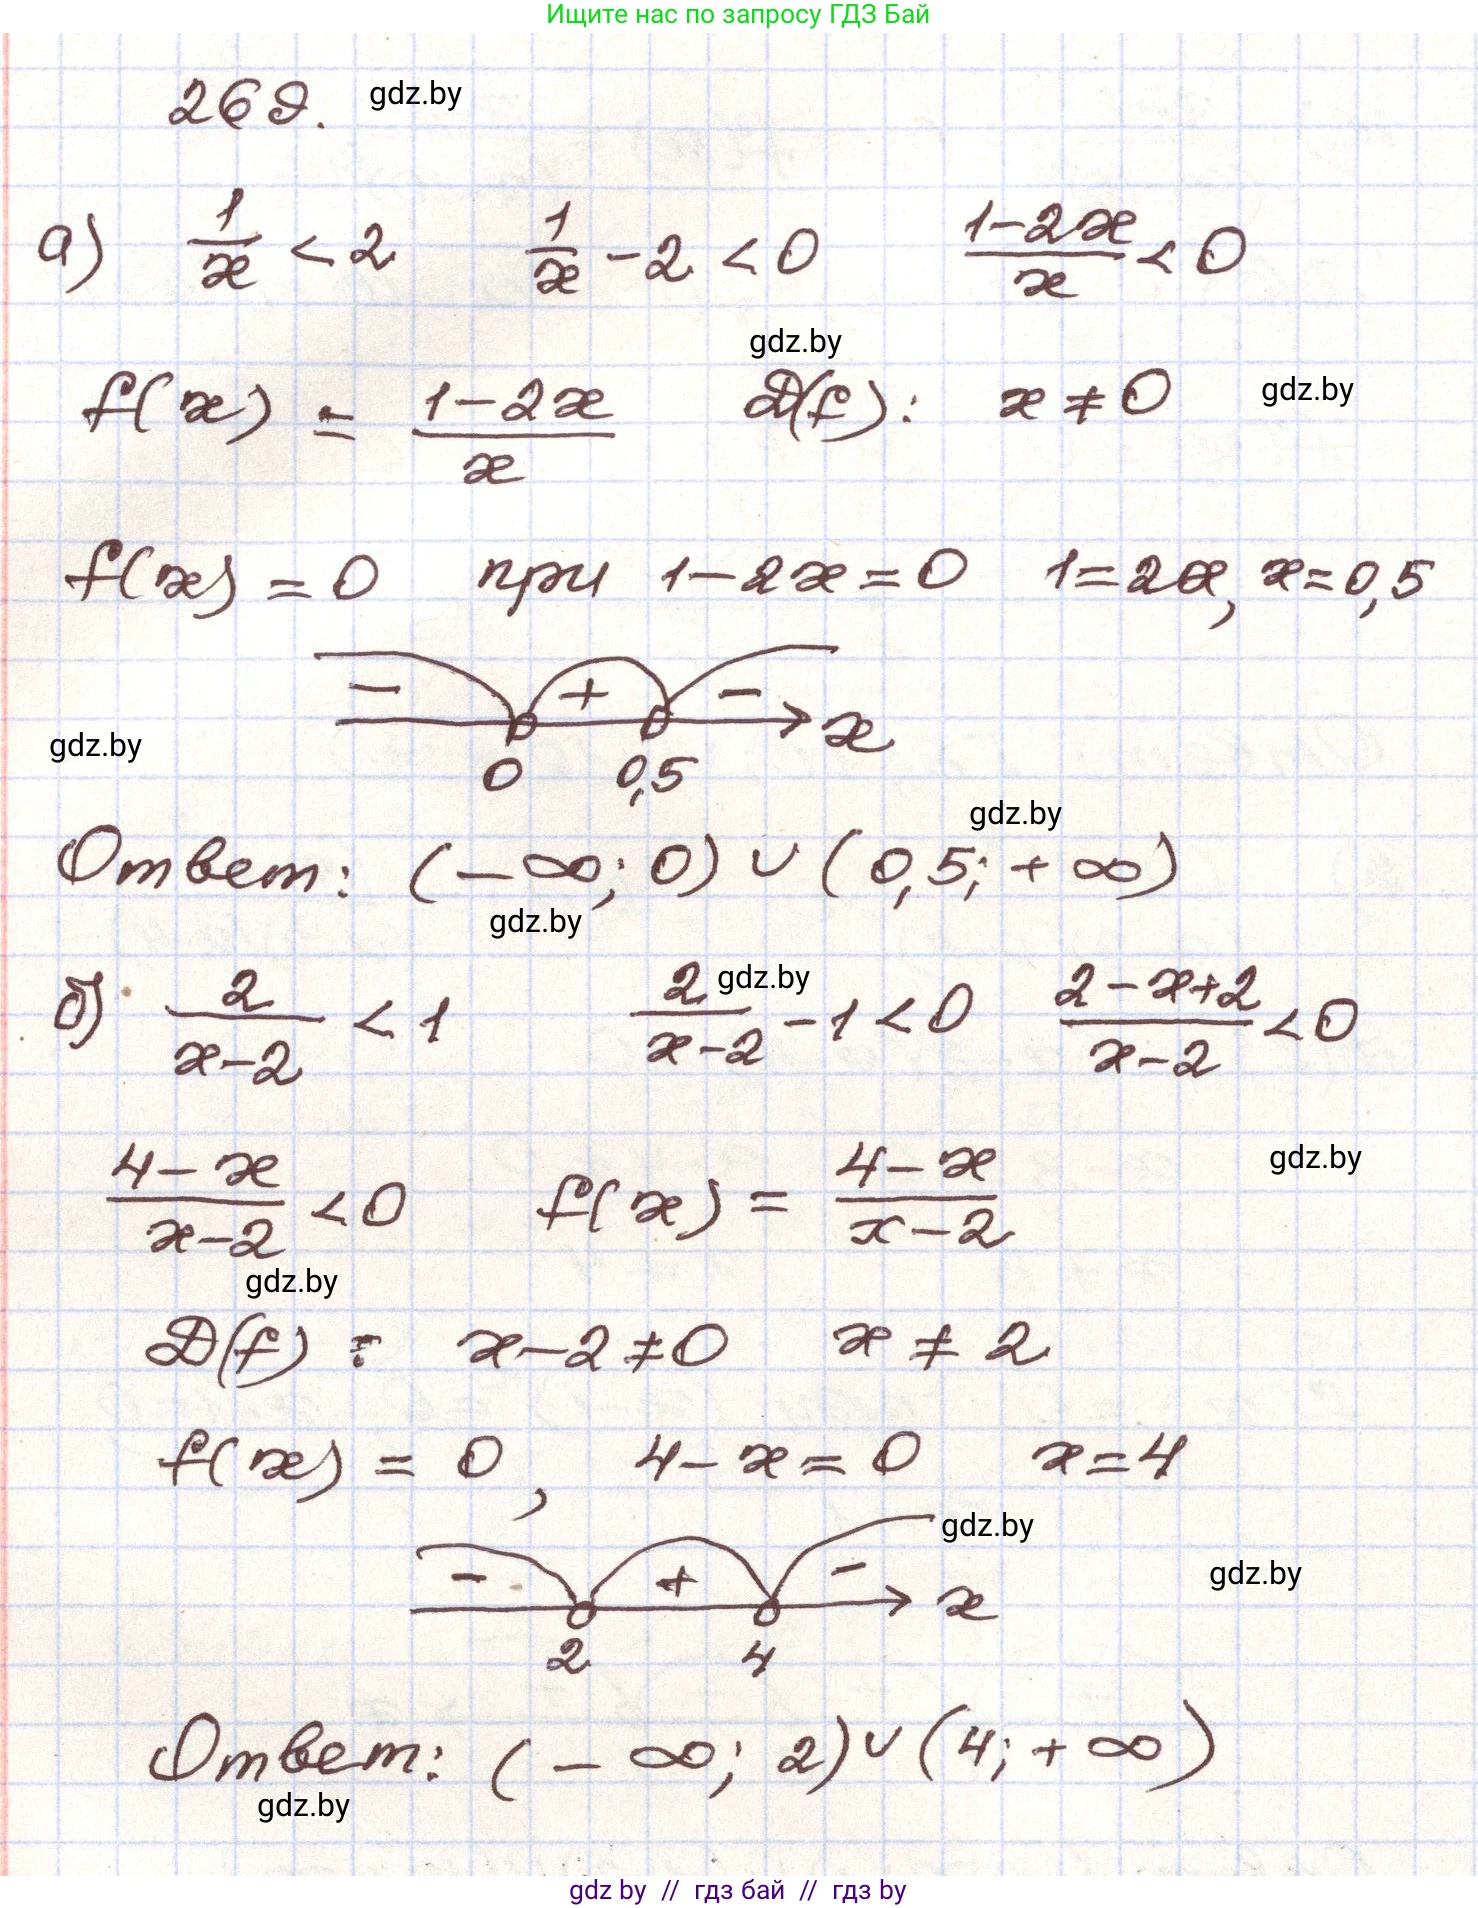 Ищите нас по запросу ГДЗ Бай
269. gdz.by
а) 1/x < 2 1/x - 2 < 0 (1-2x)/x < 0
gdz.by
f(x) = (1-2x)/x D(f): x ≠ 0 gdz.by
f(x) = 0 при 1-2x=0 1=2x, x=0,5
- + - x
gdz.by
0 0,5
gdz.by
Ответ: (-∞; 0) ∪ (0,5; +∞)
gdz.by
б) 2/(x-2) < 1 2/(x-2) - 1 < 0 (2-x+2)/(x-2) < 0
gdz.by
(4-x)/(x-2) < 0 f(x) = (4-x)/(x-2) gdz.by
gdz.by
D(f): x-2≠0 x ≠ 2
f(x) = 0, 4-x=0 x=4
gdz.by
- + - x gdz.by
2 4
Ответ: (-∞; 2) ∪ (4; +∞)
gdz.by
gdz by // гдз бай // гдз by